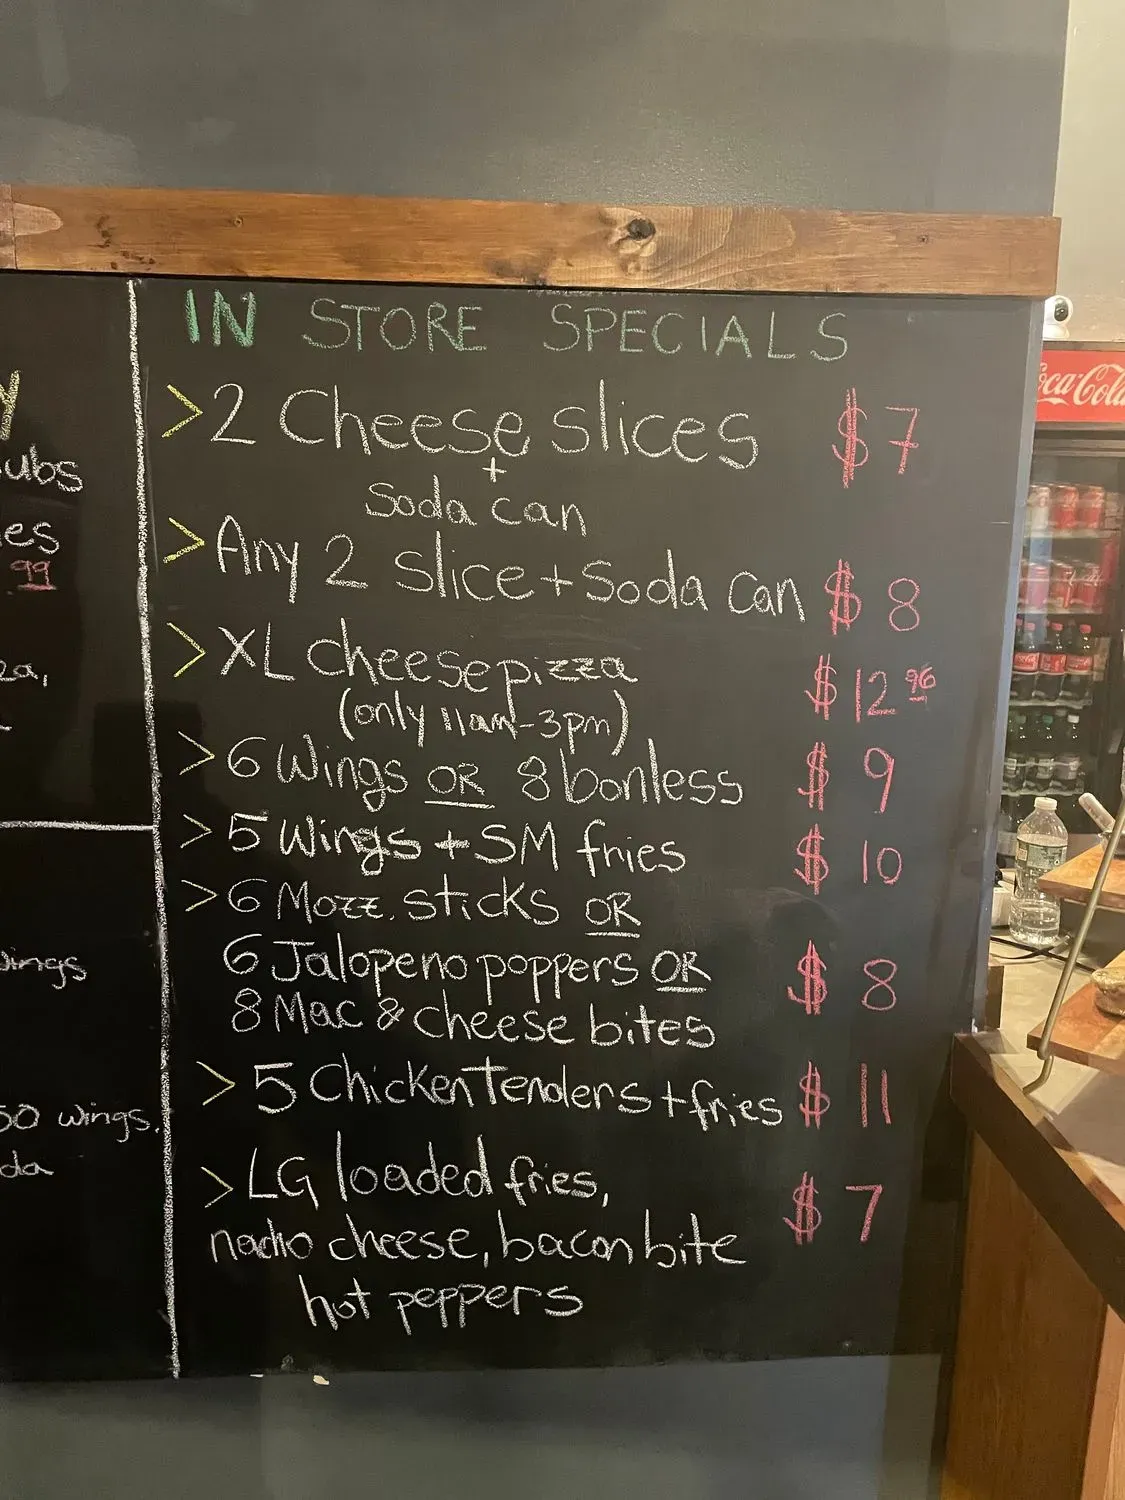 IN STORE SPECIALS
>2 Cheese slices $7
+
Soda can
>Any 2 slice+Soda can $8
>XL cheese pizza $12.96
(only 11am-3pm)
>6 Wings OR 8 bonless $9
>5 Wings + SM fries $10
>6 Mozz. sticks OR
6 Jalopeno poppers OR $8
8 Mac & cheese bites
>5 Chicken Tenders + fries $11
>LG loaded fries, $7
nacho cheese, bacon bite
hot peppers
ubs
es
99
za,
wings
50 wings.
da
Coca-Cola